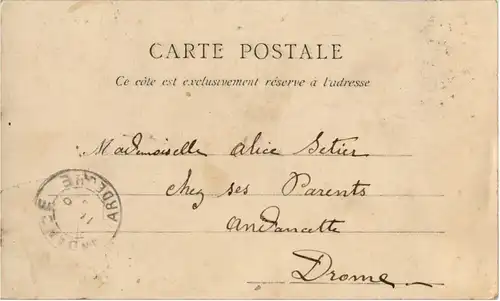 CARTE POSTALE
Ce côté est exclusivement réservé à l'adresse
Mademoiselle Alice Setier
chez ses Parents
andancette
Drome
ARDECHE